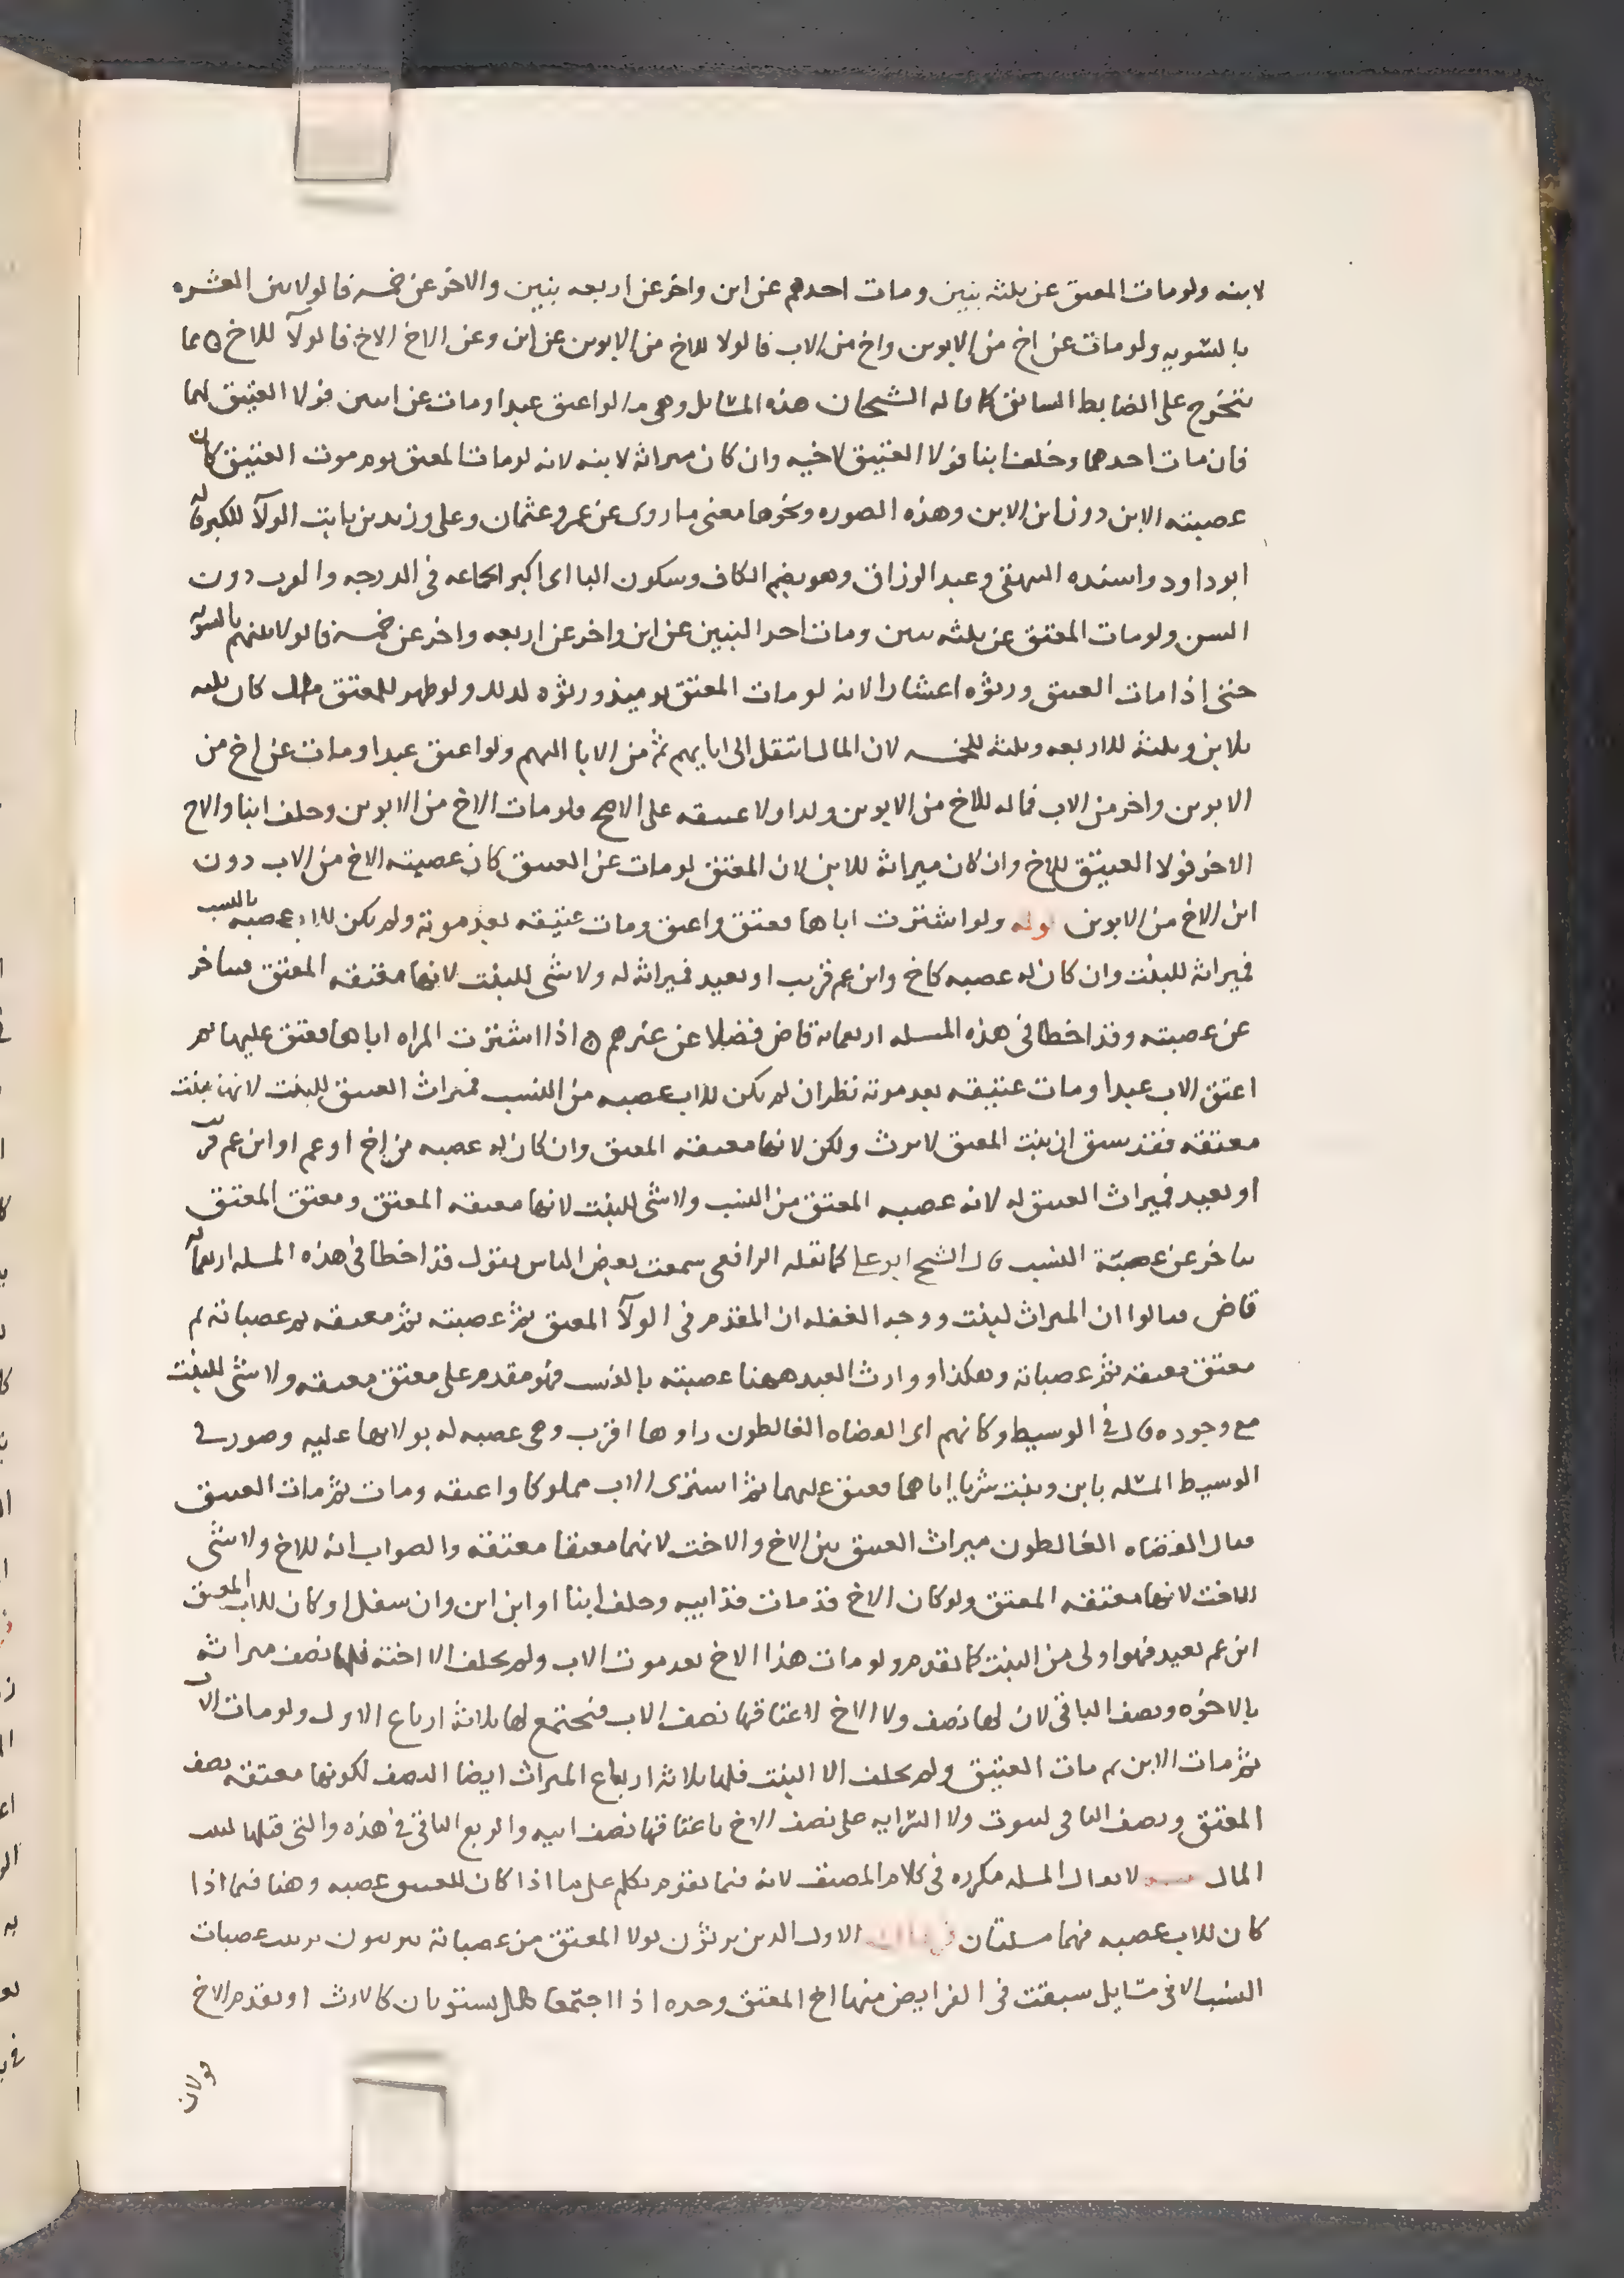 لابنه ولو مات المعتق عن ثلثه بنين ومات احدهم عن ابن واخر عن اربعه بنين والاخر عن خمسه فالولا بين العشره
بالسويه ولو مات عن اخ من الابوين واخ من الاب فالولا للاخ من الابوين عن ابن وعن الاخ الاخ فالولآ للاخ ۞ مما
يتخرج على الضابط السابق كما قاله الشيحان هذه المسايل وهي ما لو اعتق عبدا ومات عن ابنين فولا العتيق لهما
فان مات احدهما وخلف ابنا فولا العتيق لاخيه وان كان ميراثه لابنه لانه لو مات المعتق يوم موت العتيق كان
عصبته الابن دون ابن الابن وهذه الصوره ونحوها معنى ما روى عن عمر وعثمان وعلى وزيد بن ثابت الولآ للكبر قاله
ابو داود واسنده البيهقى وعبد الرزاق وهو بضم الكاف وسكون البا اى اكبر الجماعه فى الدرجه والقرب دون
السن ولو مات المعتق عن ثلثه بنين ومات احد البنين عن ابن واخر عن اربعه واخر عن خمسه فالولا بينهم بالسويه
حتى إذا مات العتيق ورثوه اعشارا لانه لو مات المعتق يوميذ ورثوه كذلك ولو ظهر للمعتق مال كان ثلثه
للابن وثلثه للاربعه وثلثه للخمسه لان المال انتقل الى ابايهم ثم من الابا اليهم ولو اعتق عبدا ومات عن اخ من
الابوين واخر من الاب فماله للاخ من الابوين ولدا ولا عتيقه على الاصح ولو مات الاخ من الابوين وخلف ابنا والاخ
الاخر فولا العتيق للاخ وان كان ميراثه للابن لان المعتق لو مات عن العتيق كان عصبته الاخ من الاب دون
ابن الاخ من الابوين قوله ولو اشترت اباها فعتق واعتق ومات عتيقه بعد موته ولم يكن للاب عصبه بالنسب
فميراثه للبنت وان كان له عصبه كاخ وابن عم قريب او بعيد فميراثه له ولا شى للبنت لانها معتقه المعتق فتتاخر
عن عصبته وقد اخطا فى هذه المسله اربعمايه قاض فضلا عن غيرهم ۞ اذا اشترت المراه اباها فعتق عليها ثم
اعتق الاب عبدا ومات عتيقه بعد موته نظر ان لم يكن للاب عصبه من النسب فميراث العتيق للبنت لا نها بنت
معتقه فقد سبق ان بنت المعتق لا ترث ولكن لانها معتقه المعتق وان كان له عصبه من اخ او عم او ابن عم قريب
او بعيد فميراث العتيق له لانه عصبه المعتق من النسب ولا شى للبنت لانها معتقه المعتق ومعتق المعتق
يتاخر عن عصبة النسب قال الشيخ ابو على كما نقله الرافعى سمعت بعض الناس يقول قد اخطا فى هذه المسله اربعمايه
قاض فقالوا ان الميراث لبنت ووجه الغفله ان المقدم فى الولآ المعتق ثم عصبته ثم معتقه ثم عصباته ثم
معتق معتقه ثم عصباته وهكذا ووارث العبد ههنا عصبته بالنسب فهو مقدم على معتق معتقه ولا شى للبنت
مع وجوده قال فى الوسيط وكانهم اى القضاه الغالطون راوها اقرب وهى عصبه له بولايها عليه وصور فى
الوسيط المسله بابن وبنت شريا اباهما فعتق عليهما ثم اشترى الاب مملوكا واعتقه ومات ثم مات العتيق
فقال القضاه الغالطون ميراث العتيق بين الاخ والاخت لانهما معتقا معتقه والصواب انه للاخ ولا شى
للاخت لانها معتقه المعتق ولو كان الاخ قد مات قد ابيه وخلف ابنا او ابن ابن وان سفل او كان للاب المعتق
ابن عم بعيد فهو اولى من البنت كما تقدم ولو مات هذا الاخ بعد موت الاب ولم يخلف الا اخته فلها نصف ميراثه
بالاخوه ونصف الباقى لان لها نصف ولا الاخ لاعتاقها نصف الاب فتجتمع لها ثلاثه ارباع الاول ولو مات الاب
ثم مات الابن ثم مات العتيق ولم يخلف الا البنت فلها ثلاثه ارباع الميراث ايضا النصف لكونها معتقه نصف
المعتق ونصف الباقى لثبوت ولا السرايه على نصف الاخ باعتاقها نصف ابيه والربع الباقى فى هذه والتى قبلها لبيت
المال لا يقال المسله مكرره فى كلام المصنف لانه فيما تقدم تكلم على ما اذا كان للعتيق عصبه وهنا فيما اذا
كان للاب عصبه فهما مسلتان الاول الذين يرثون بولا المعتق من عصباته يترتبون ترتيب عصبات
النسب الا فى مسايل سبقت فى الفرايض منها اخ المعتق وحده اذا اجتمعا هل يستويان كالارث او يقدم الاخ
قولان